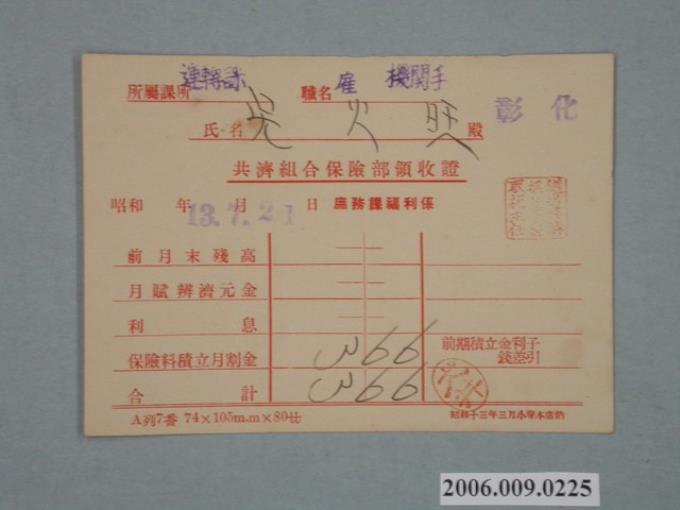 所屬課所 運轉課 職名 雇 機關手
氏名 吳火旺 殿 彰化
共濟組合保險部領收證
昭和 年 月 日 13.7.21 庶務課福利係
前月末殘高
月賦辨濟元金
利息
保險料積立月割金 3 66 前期積立金利子
錢差引
合計 3 66
A列7番 74×105m.m×80廿
昭和十三年三月小塚本店納
2006.009.0225